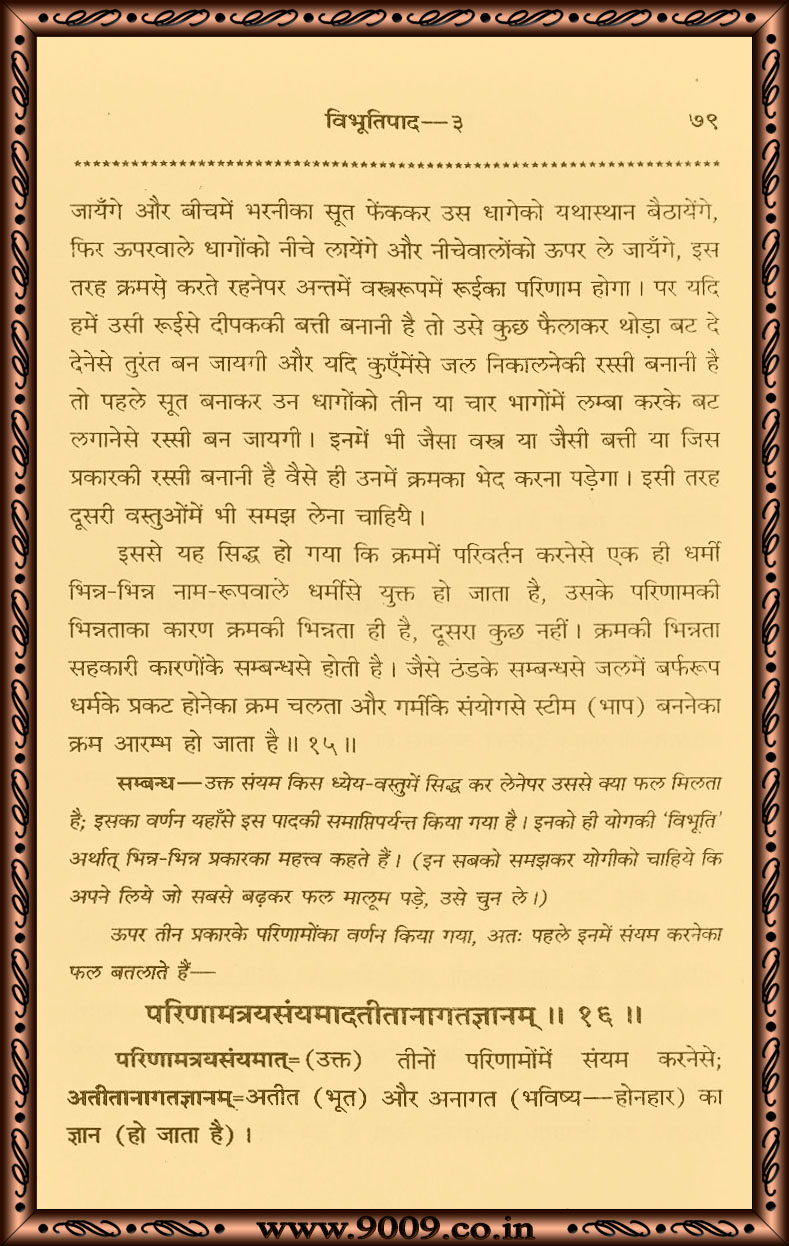 विभूतिपाद—३ ७९
जायँगे और बीचमें भरनीका सूत फेंककर उस धागेको यथास्थान बैठायेंगे,
फिर ऊपरवाले धागोंको नीचे लायेंगे और नीचेवालोंको ऊपर ले जायँगे, इस
तरह क्रमसे करते रहनेपर अन्तमें वस्त्ररूपमें रूईका परिणाम होगा। पर यदि
हमें उसी रूईसे दीपककी बत्ती बनानी है तो उसे कुछ फैलाकर थोड़ा बट दे
देनेसे तुरंत बन जायगी और यदि कुएँमेंसे जल निकालनेकी रस्सी बनानी है
तो पहले सूत बनाकर उन धागोंको तीन या चार भागोंमें लम्बा करके बट
लगानेसे रस्सी बन जायगी। इनमें भी जैसा वस्त्र या जैसी बत्ती या जिस
प्रकारकी रस्सी बनानी है वैसे ही उनमें क्रमका भेद करना पड़ेगा। इसी तरह
दूसरी वस्तुओंमें भी समझ लेना चाहिये।
इससे यह सिद्ध हो गया कि क्रममें परिवर्तन करनेसे एक ही धर्मी
भिन्न-भिन्न नाम-रूपवाले धर्मीसे युक्त हो जाता है, उसके परिणामकी
भिन्नताका कारण क्रमकी भिन्नता ही है, दूसरा कुछ नहीं। क्रमकी भिन्नता
सहकारी कारणोंके सम्बन्धसे होती है। जैसे ठंडके सम्बन्धसे जलमें बर्फरूप
धर्मके प्रकट होनेका क्रम चलता और गर्मीके संयोगसे स्टीम (भाप) बननेका
क्रम आरम्भ हो जाता है॥ १५॥
सम्बन्ध—उक्त संयम किस ध्येय-वस्तुमें सिद्ध कर लेनेपर उससे क्या फल मिलता
है; इसका वर्णन यहाँसे इस पादकी समाप्तिपर्यन्त किया गया है। इनको ही योगकी ‘विभूति’
अर्थात् भिन्न-भिन्न प्रकारका महत्त्व कहते हैं। (इन सबको समझकर योगीको चाहिये कि
अपने लिये जो सबसे बढ़कर फल मालूम पड़े, उसे चुन ले।)
ऊपर तीन प्रकारके परिणामोंका वर्णन किया गया, अतः पहले इनमें संयम करनेका
फल बतलाते हैं—
परिणामत्रयसंयमादतीतानागतज्ञानम्॥ १६॥
परिणामत्रयसंयमात्=(उक्त) तीनों परिणामोंमें संयम करनेसे;
अतीतानागतज्ञानम्=अतीत (भूत) और अनागत (भविष्य—होनहार) का
ज्ञान (हो जाता है)।
www.9009.co.in